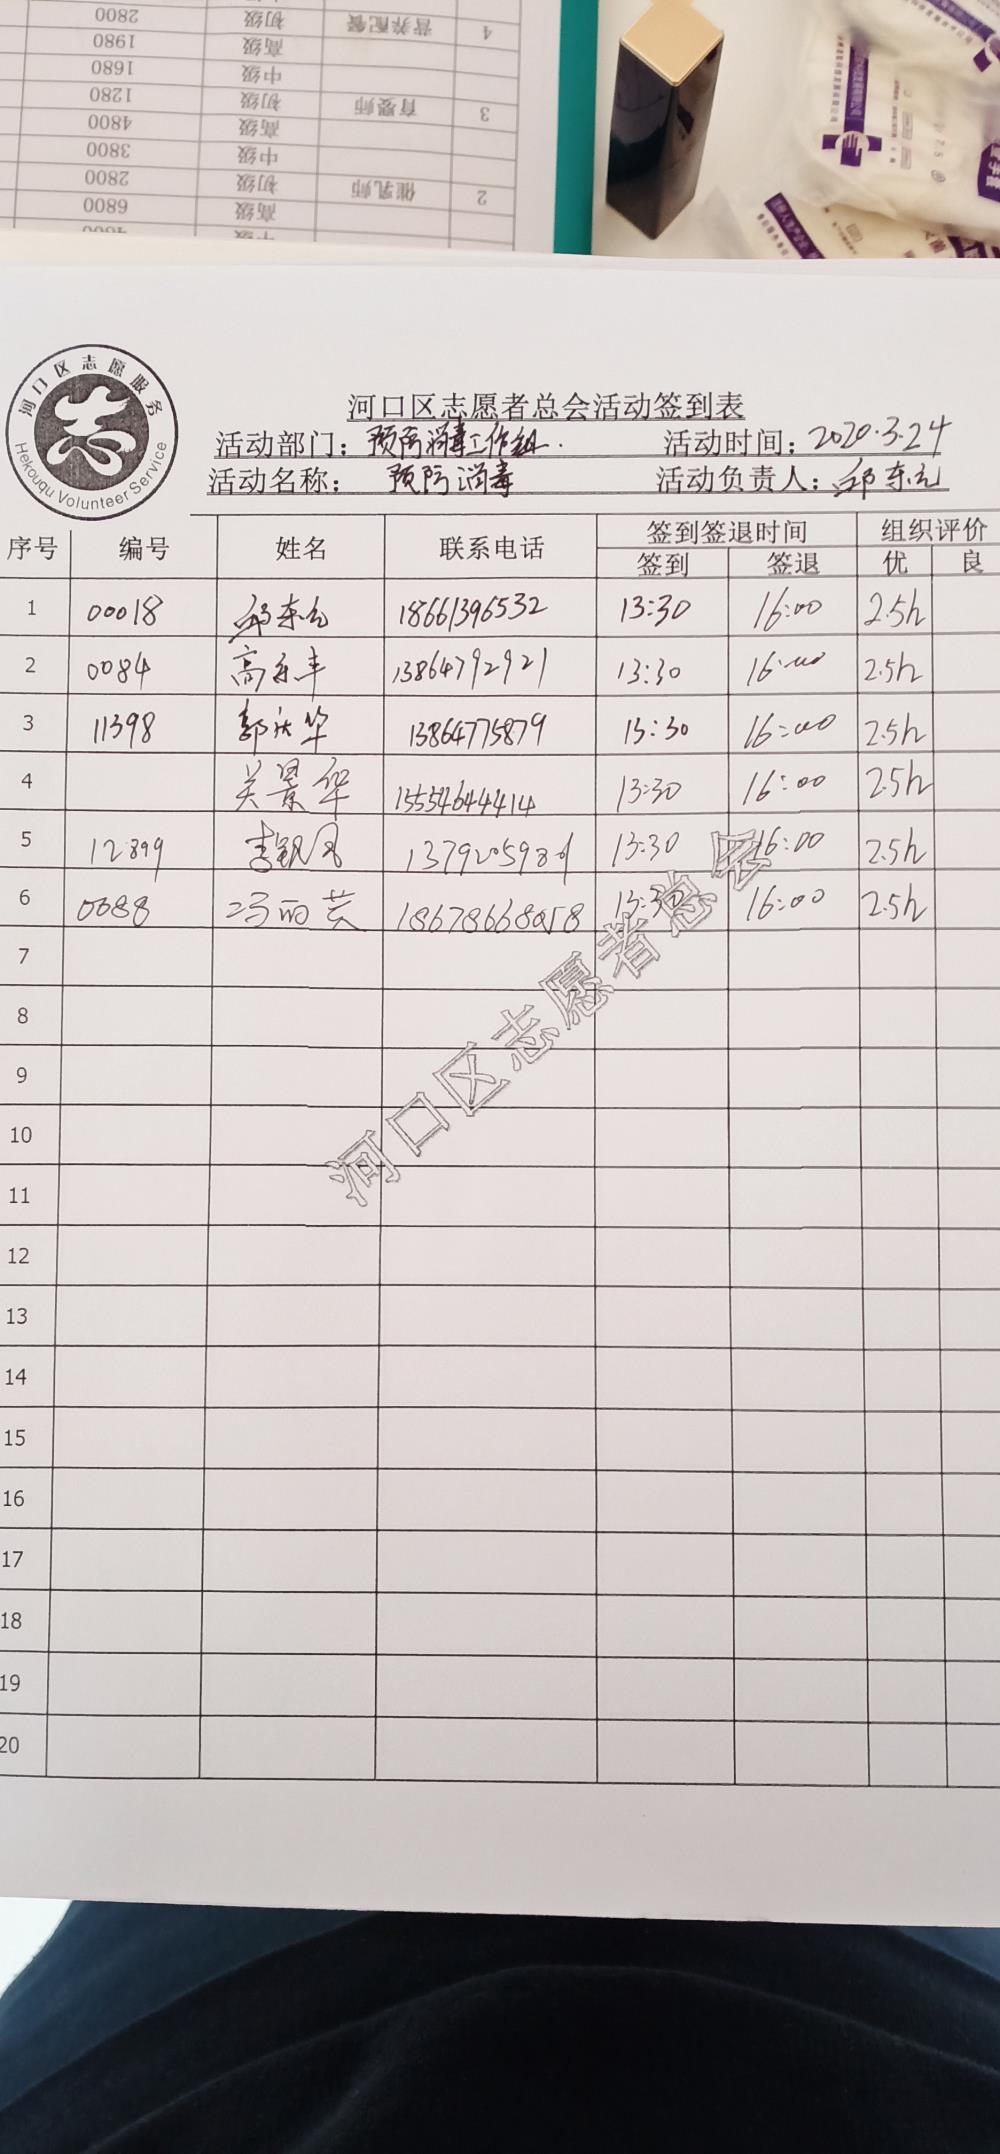 4 营养配餐 初级 2800
高级 1980
中级 1680
3 育婴师 初级 1280
高级 4800
中级 3800
2 催乳师 初级 2800
高级 6800
河口区志愿服务
Hekouqu Volunteer Service
河口区志愿者总会活动签到表
活动部门：预防消毒工作组. 活动时间：2020.3.24
活动名称： 预防消毒 活动负责人：邱东元
序号 编号 姓名 联系电话 签到签退时间 组织评价
签到 签退 优 良
1 00018 邱东元 18661396532 13:30 16:00 2.5h
2 0084 高 13864792921 13:30 16:00 2.5h
3 11398 郭庆华 13864775879 13:30 16:00 2.5h
4 吴景华 15554644414 13:30 16:00 2.5h
5 12899 李银凤 13:30 16:00 2.5h
6 0088 冯丽芸 13:30 16:00 2.5h
7
8
9
10
11
12
13
14
15
16
17
18
19
20
河口区志愿者总会